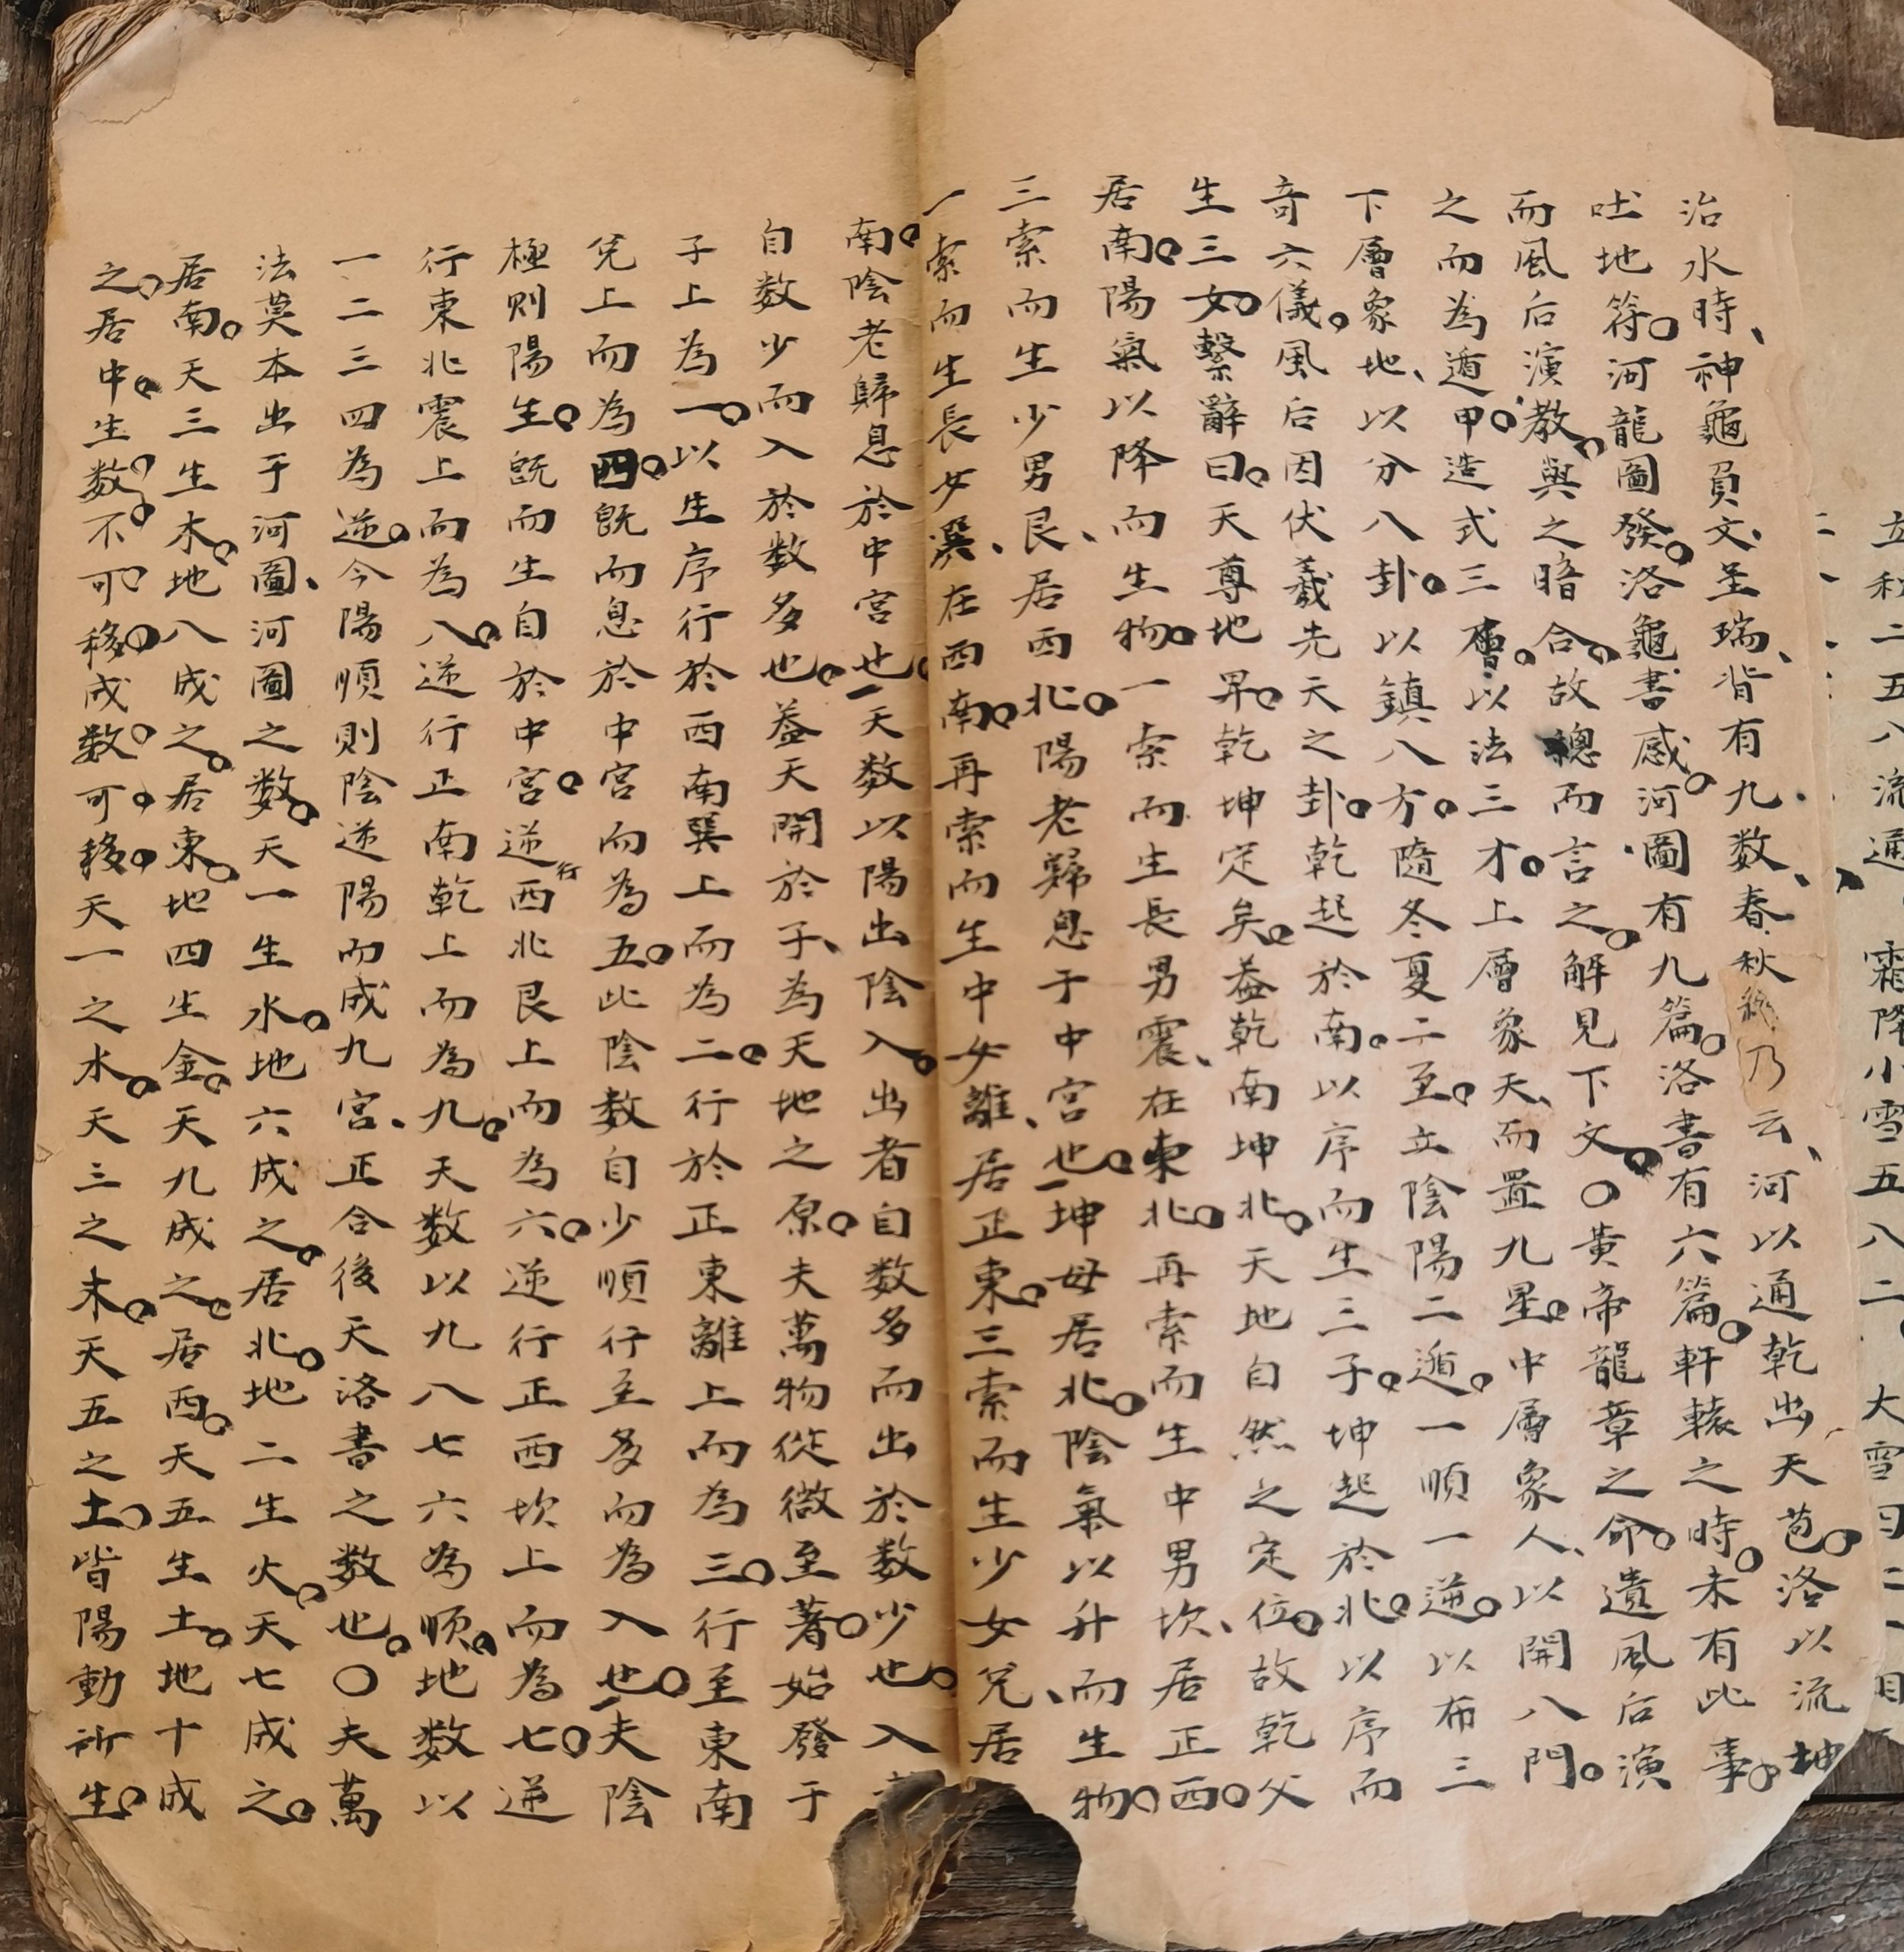 立秋二五八流通霜降小雪五八二大雪四
治水時、神龜負文呈瑞、背有九数、春秋乃云、河以通乾出天苞。洛以流坤
吐地符。河龍圖發。洛龜書感。河圖有九篇。洛書有六篇。軒轅之時。未有此事。
而風后演教。與之暗合。故總而言之。解見下文。○黄帝龍章之命。遺風后演
之而為遁甲。造式三層。以法三才。上層象天、而置九星。中層象人、以開八門。
下層象地、以分八卦。以鎮八方。隨冬夏二至。立陰陽二遁。一順一逆。以布三
奇六儀。風后因伏羲先天之卦。乾起於南。以序而生三子。坤起於北。以序而
生三女。繫辭曰。天尊地界。乾坤定矣。益乾南坤北。天地自然之定位。故乾父
居南。陽氣以降而生物。一索而生長男震、在東北。再索而生中男坎、居正西。
三索而生少男艮、居西北。陽老歸息于中宮也。坤母居北。陰氣以升而生物。
一索而生長女巽、在西南。再索而生中女離、居正東。三索而生少女兌、居
南。陰老歸息於中宮也。天数以陽出陰入。出者自数多而出於数少也。入
自数少而入於数多也。益天開於子、為天地之原。夫萬物從微至著。始發于
子上為一。以生序行於西南巽上而為二。行於正東離上而為三。行至東南
兌上而為四。既而息於中宮而為五。此陰数自少順行至多而為入也。夫陰
極則陽生。既而生自於中宮。逆行西北艮上而為六。逆行正西坎上而為七。逆
行東北震上而為八。逆行正南乾上而為九。天数以九八七六為順。地数以
一二三四為逆。今陽順則陰逆陽而成九宮、正合後天洛書之数也。○夫萬
法莫本出于河圖、河圖之数。天一生水。地六成之。居北。地二生火。天七成之。
居南。天三生木。地八成之。居東。地四生金。天九成之。居西。天五生土。地十成
之。居中。生数。不可移。成数。可移。天一之水。天三之木。天五之土。皆陽動所生。